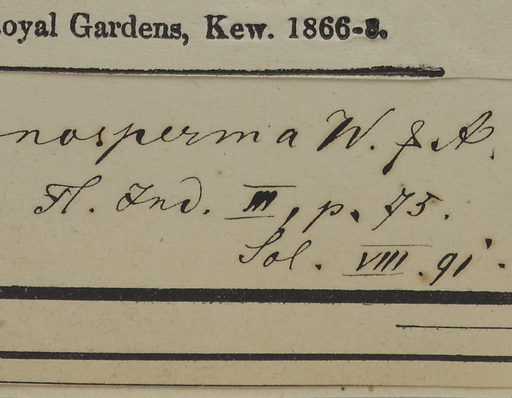 oyal Gardens, Kew. 1866-8.
nosperma W. & A.
Fl. Ind. III, p. 75.
Sol. VIII. 91.